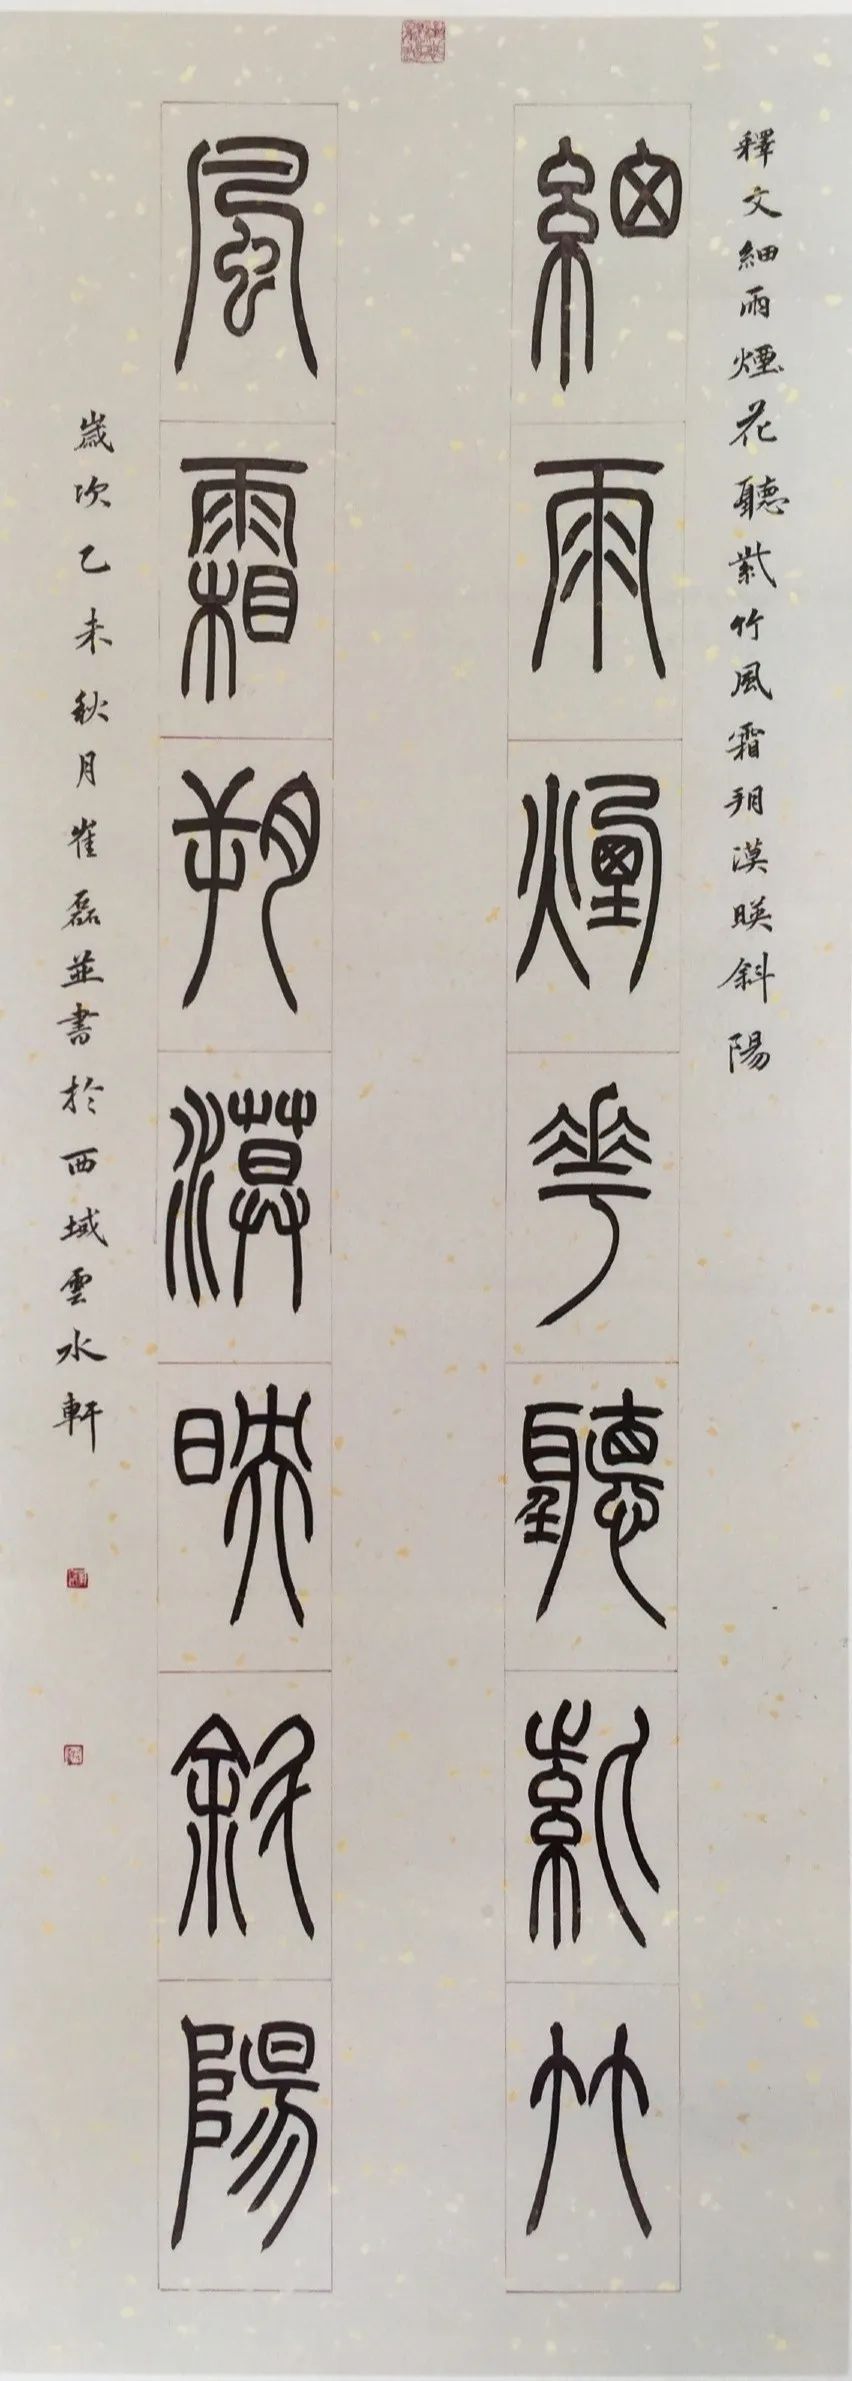 釋文細雨煙花聽紫竹風霜朔漠暎斜陽
細雨煙華聽紫竹
風霜朔漠映斜陽
歲次乙未秋月崔磊並書於西域雲水軒